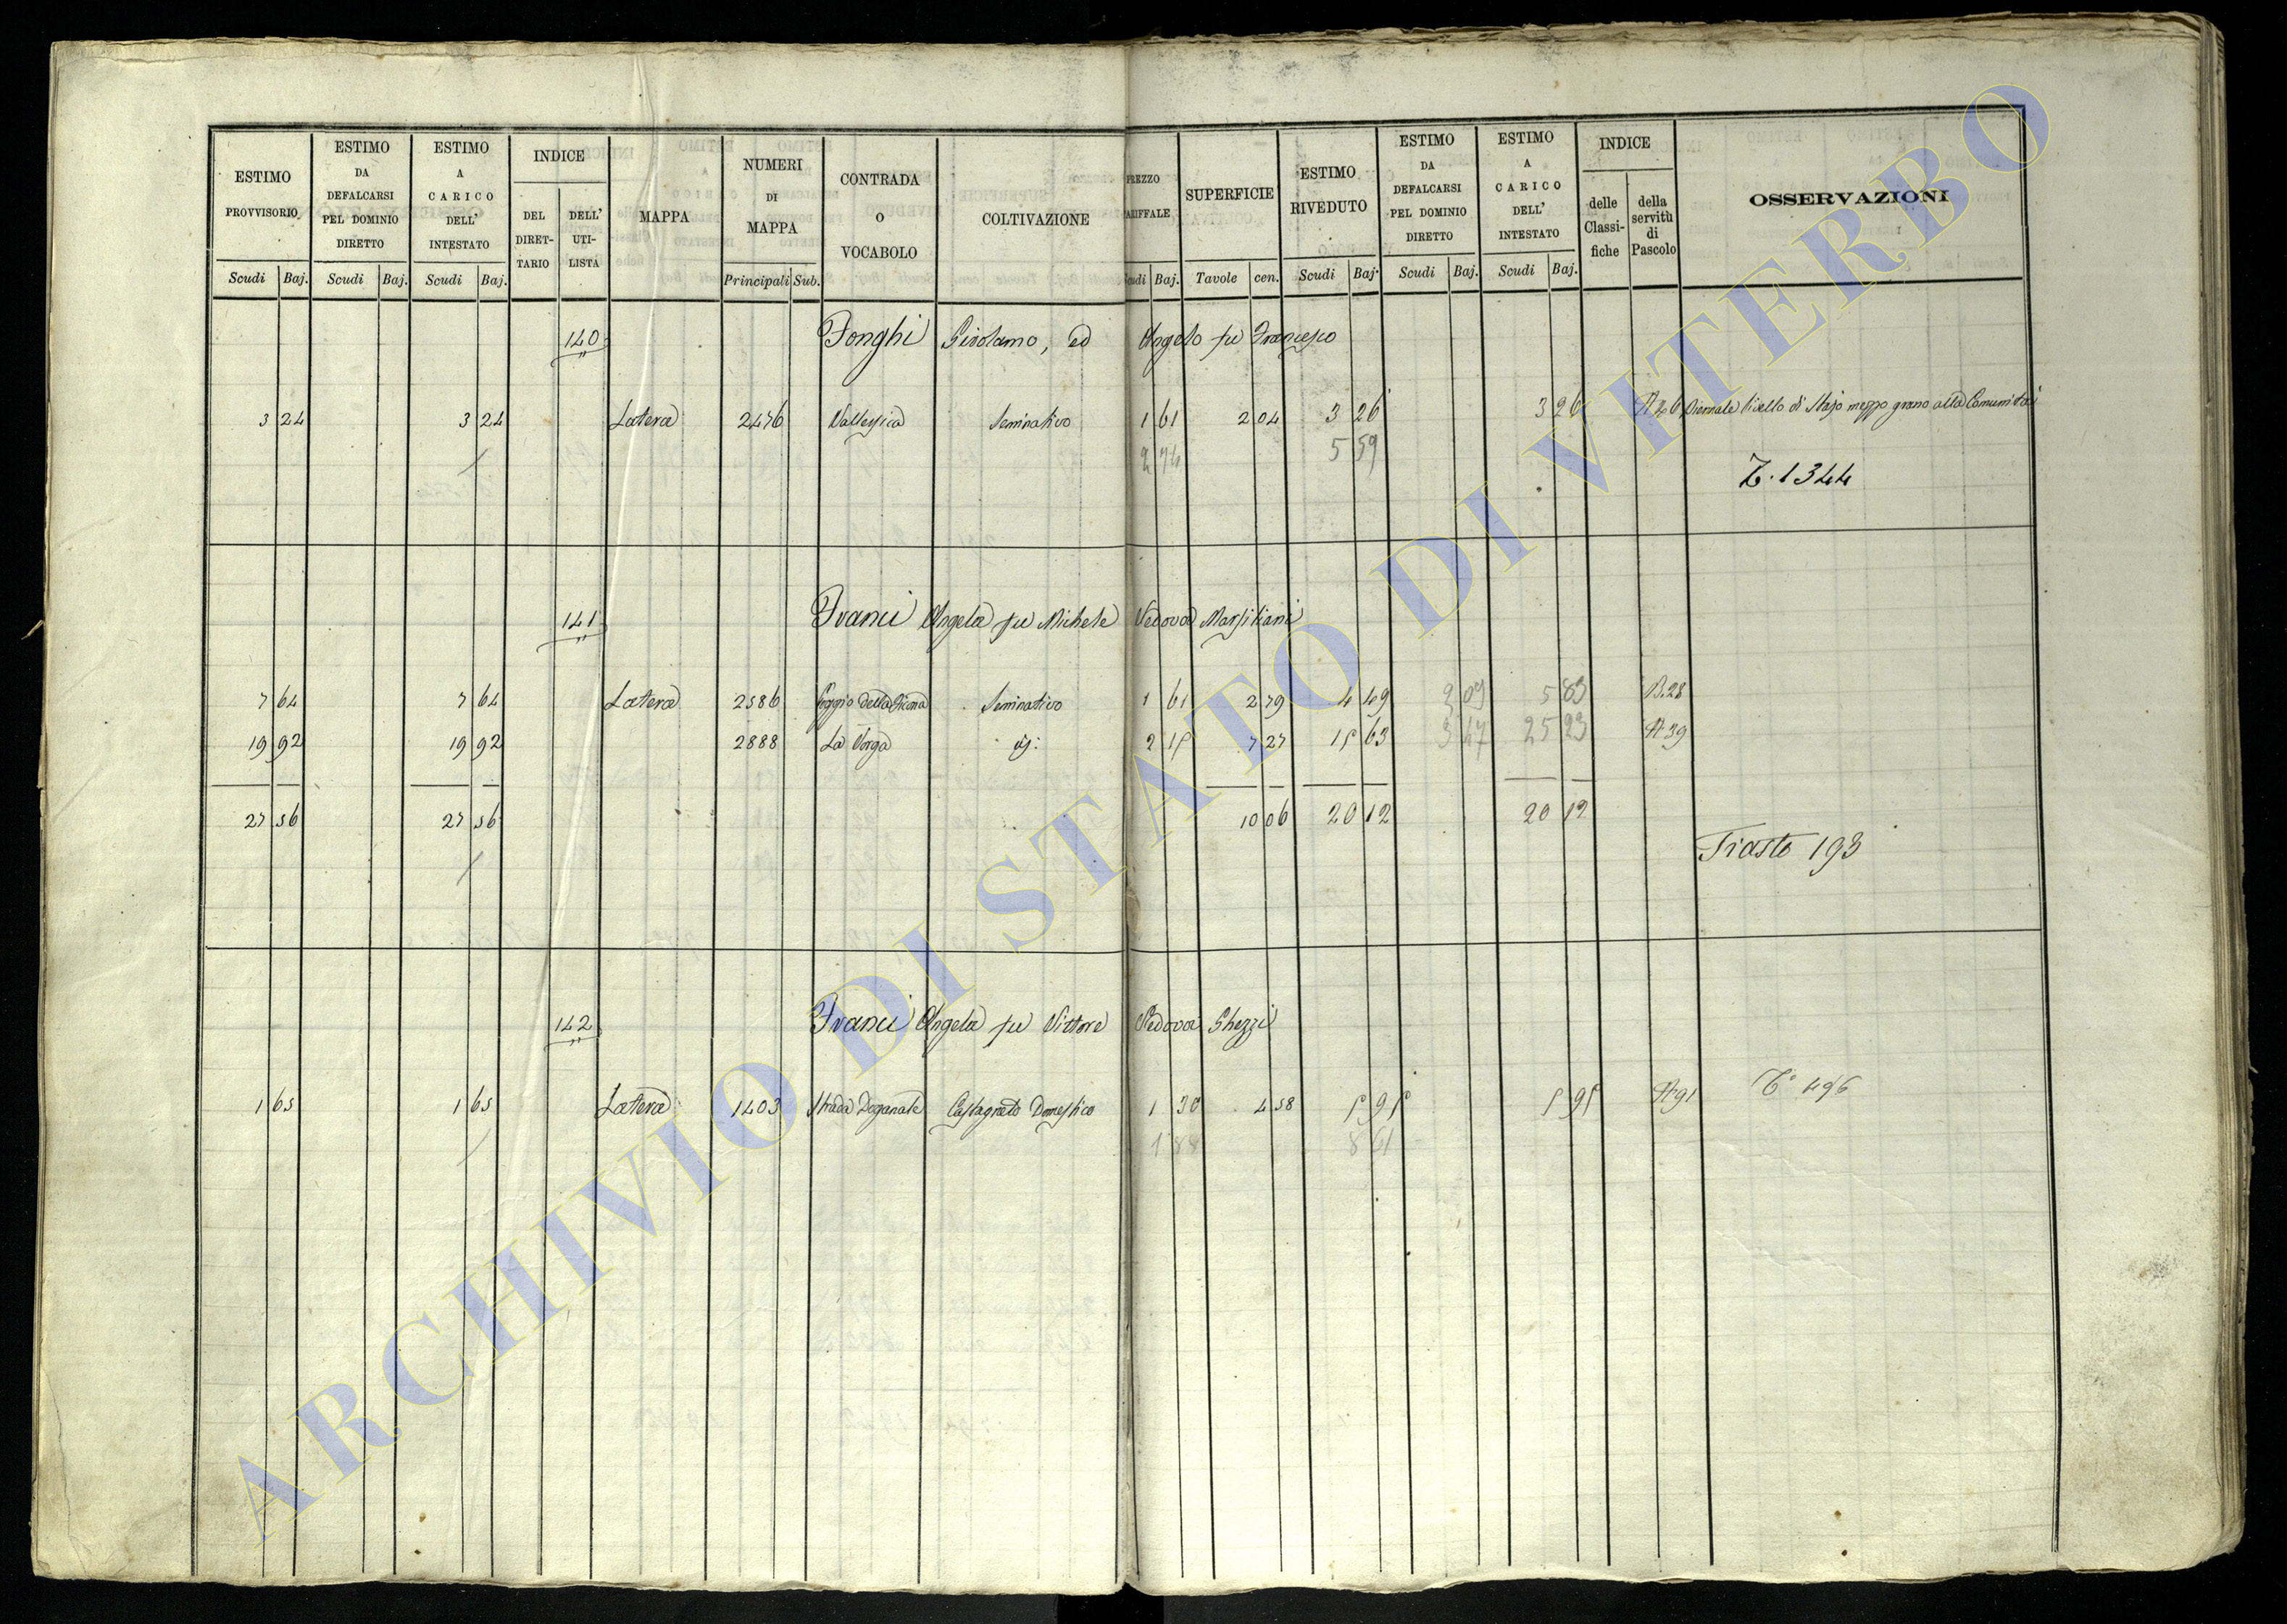 ESTIMO PROVVISORIO Scudi Baj.
ESTIMO DA DEFALCARSI PEL DOMINIO DIRETTO Scudi Baj.
ESTIMO A CARICO DELL' INTESTATO Scudi Baj.
INDICE DEL DIRETTARIO DELL' UTILISTA
MAPPA
NUMERI DI MAPPA Principali Sub.
CONTRADA O VOCABOLO
COLTIVAZIONE
PREZZO TARIFFALE Scudi Baj.
SUPERFICIE Tavole cen.
ESTIMO RIVEDUTO Scudi Baj.
ESTIMO DA DEFALCARSI PEL DOMINIO DIRETTO Scudi Baj.
ESTIMO A CARICO DELL' INTESTATO Scudi Baj.
INDICE delle Classifiche della servitù di Pascolo
OSSERVAZIONI
140 Fonghi Girolamo, ed Angelo fu Francesco
3 24 3 24 Latera 2476 Seminativo 1 61 2 04 3 26 3 26 livello di Stajo mezzo grano alla Comunità
2 74 5 59
T. 1344
141 Franci Angela fu Michele Vedova Marsiliani
7 64 7 64 Latera 2586 Poggio della Ficona Seminativo 1 61 2 79 4 49 5 83 B.28
19 92 19 92 2888 La Vorga 2 15 7 27 15 63 3 47 25 23 A 39
27 56 27 56 10 06 20 12 20 12
Trasto 193
142 Franci Angela fu Vittore Vedova Ghezzi
1 65 1 65 Latera 1403 Strada Doganale Castagneto Domestico 1 30 4 58 5 95 5 95 A 91 T° 496
1 88 8 61
ARCHIVIO DI STATO DI VITERBO